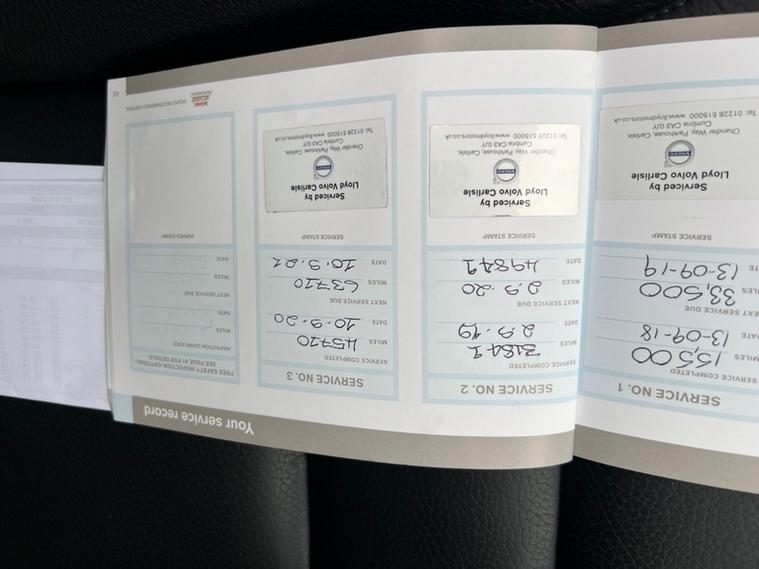 Your service record
SERVICE NO. 1
SERVICE COMPLETED
MILES 15,500
DATE 13-09-18
NEXT SERVICE DUE
MILES 33,500
DATE 13-09-19
Serviced by
Lloyd Volvo Carlisle
VOLVO
Chandler Way, Parkhouse, Carlisle,
Cumbria CA3 0JY
Tel: 01228 515000 www.lloydmotors.co.uk
SERVICE NO. 2
SERVICE COMPLETED
MILES 31841
DATE 2.9.19
NEXT SERVICE DUE
MILES 2.9.20
DATE 49841
SERVICE STAMP
Serviced by
Lloyd Volvo Carlisle
VOLVO
Chandler Way, Parkhouse, Carlisle,
Cumbria CA3 0JY
Tel: 01228 515000 www.lloydmotors.co.uk
SERVICE NO. 3
SERVICE COMPLETED
MILES 45710
DATE 10.9.20
NEXT SERVICE DUE
MILES 63710
DATE 10.9.21
SERVICE STAMP
Serviced by
Lloyd Volvo Carlisle
VOLVO
Chandler Way, Parkhouse, Carlisle,
Cumbria CA3 0JY
Tel: 01228 515000 www.lloydmotors.co.uk
FREE SAFETY INSPECTION (OPTIONAL)
SEE PAGE 41 FOR DETAILS
INSPECTION COMPLETED
MILES
DATE
NEXT SERVICE DUE
MILES
DATE
SERVICE STAMP
VOLVO RECOMMENDS CASTROL